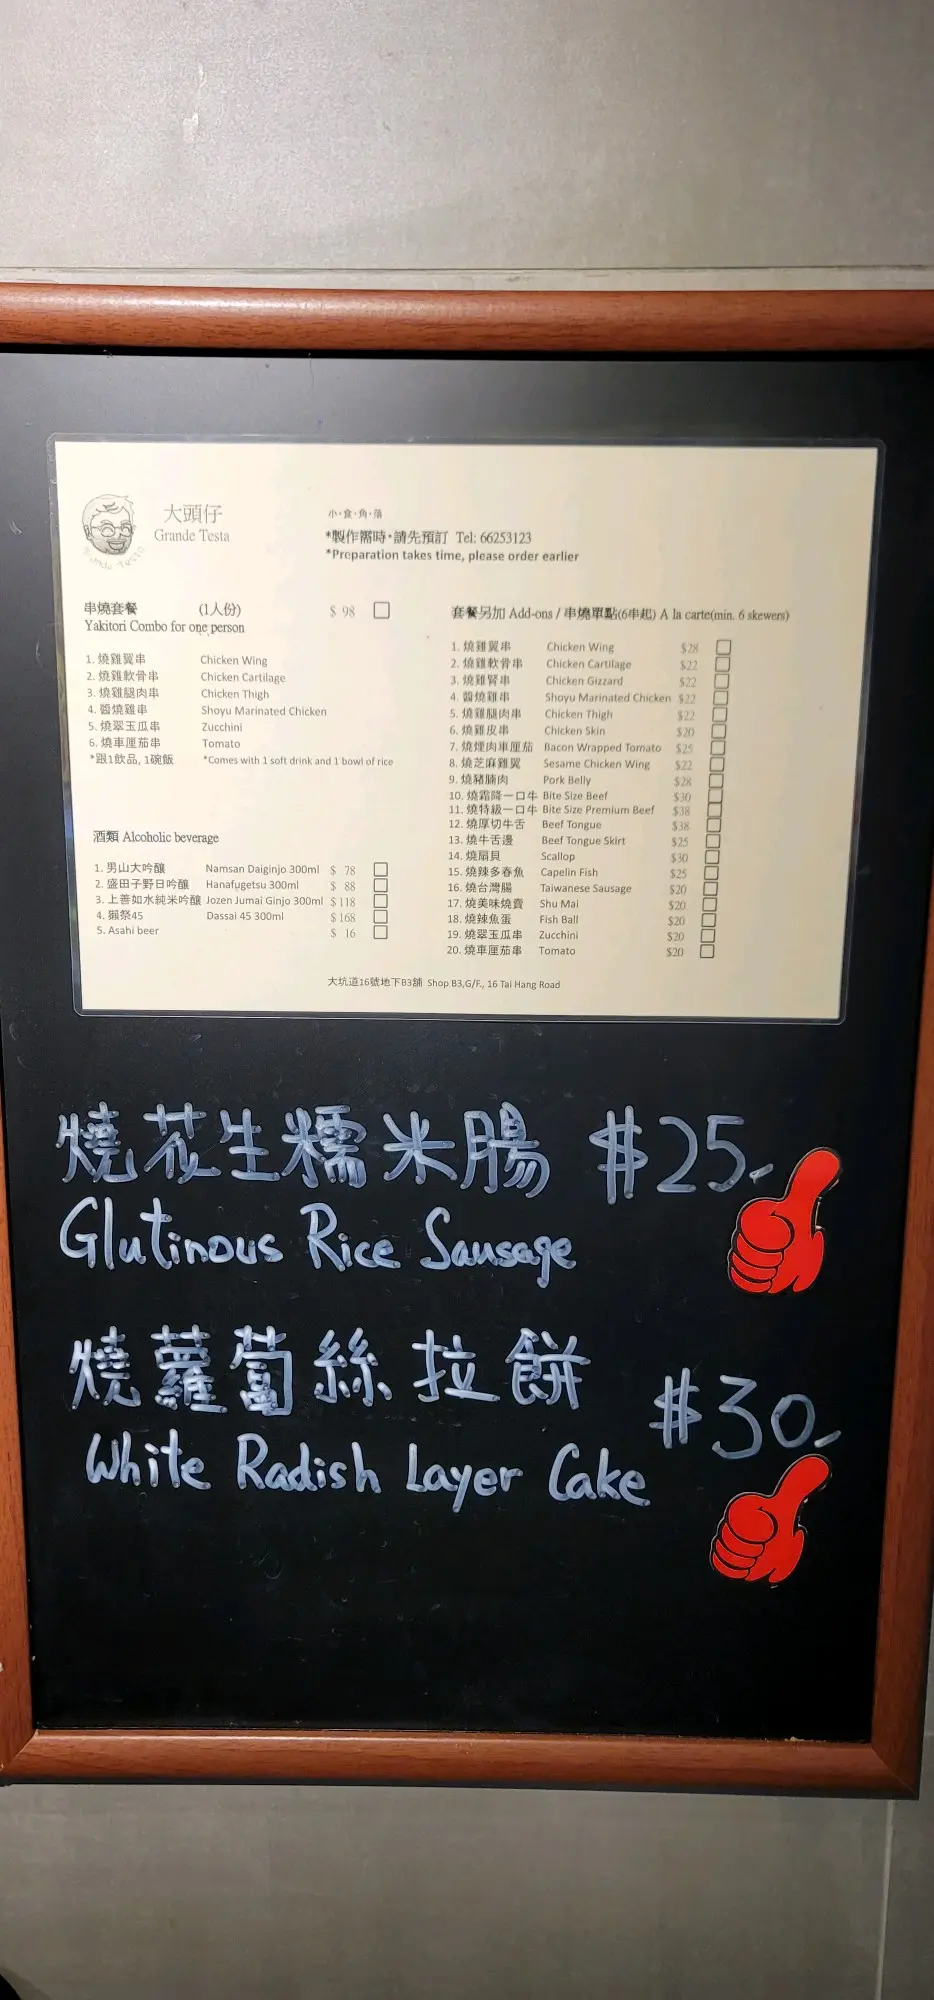 大頭仔
Grande Testa
Grande Testa
小·食·角·落
*製作需時，請先預訂 Tel: 66253123
*Preparation takes time, please order earlier
串燒套餐 (1人份) $ 98
Yakitori Combo for one person
1. 燒雞翼串 Chicken Wing
2. 燒雞軟骨串 Chicken Cartilage
3. 燒雞腿肉串 Chicken Thigh
4. 醬燒雞串 Shoyu Marinated Chicken
5. 燒翠玉瓜串 Zucchini
6. 燒車厘茄串 Tomato
*跟1飲品, 1碗飯 *Comes with 1 soft drink and 1 bowl of rice
酒類 Alcoholic beverage
1. 男山大吟釀 Namsan Daiginjo 300ml $ 78
2. 盛田子野日吟釀 Hanafugetsu 300ml $ 88
3. 上善如水純米吟釀 Jozen Jumai Ginjo 300ml $ 118
4. 獺祭45 Dassai 45 300ml $ 168
5. Asahi beer $ 16
套餐另加 Add-ons / 串燒單點(6串起) A la carte(min. 6 skewers)
1. 燒雞翼串 Chicken Wing $28
2. 燒雞軟骨串 Chicken Cartilage $22
3. 燒雞腎串 Chicken Gizzard $22
4. 醬燒雞串 Shoyu Marinated Chicken $22
5. 燒雞腿肉串 Chicken Thigh $22
6. 燒雞皮串 Chicken Skin $20
7. 燒煙肉車厘茄 Bacon Wrapped Tomato $25
8. 燒芝麻雞翼 Sesame Chicken Wing $22
9. 燒豬腩肉 Pork Belly $28
10. 燒霜降一口牛 Bite Size Beef $30
11. 燒特級一口牛 Bite Size Premium Beef $38
12. 燒厚切牛舌 Beef Tongue $38
13. 燒牛舌邊 Beef Tongue Skirt $25
14. 燒扇貝 Scallop $30
15. 燒辣多春魚 Capelin Fish $25
16. 燒台灣腸 Taiwanese Sausage $20
17. 燒美味燒賣 Shu Mai $20
18. 燒辣魚蛋 Fish Ball $20
19. 燒翠玉瓜串 Zucchini $20
20. 燒車厘茄串 Tomato $20
大坑道16號地下B3舖 Shop B3,G/F., 16 Tai Hang Road
燒花生糯米腸 $25.-
Glutinous Rice Sausage
燒蘿蔔絲拉餅 $30.-
White Radish Layer Cake